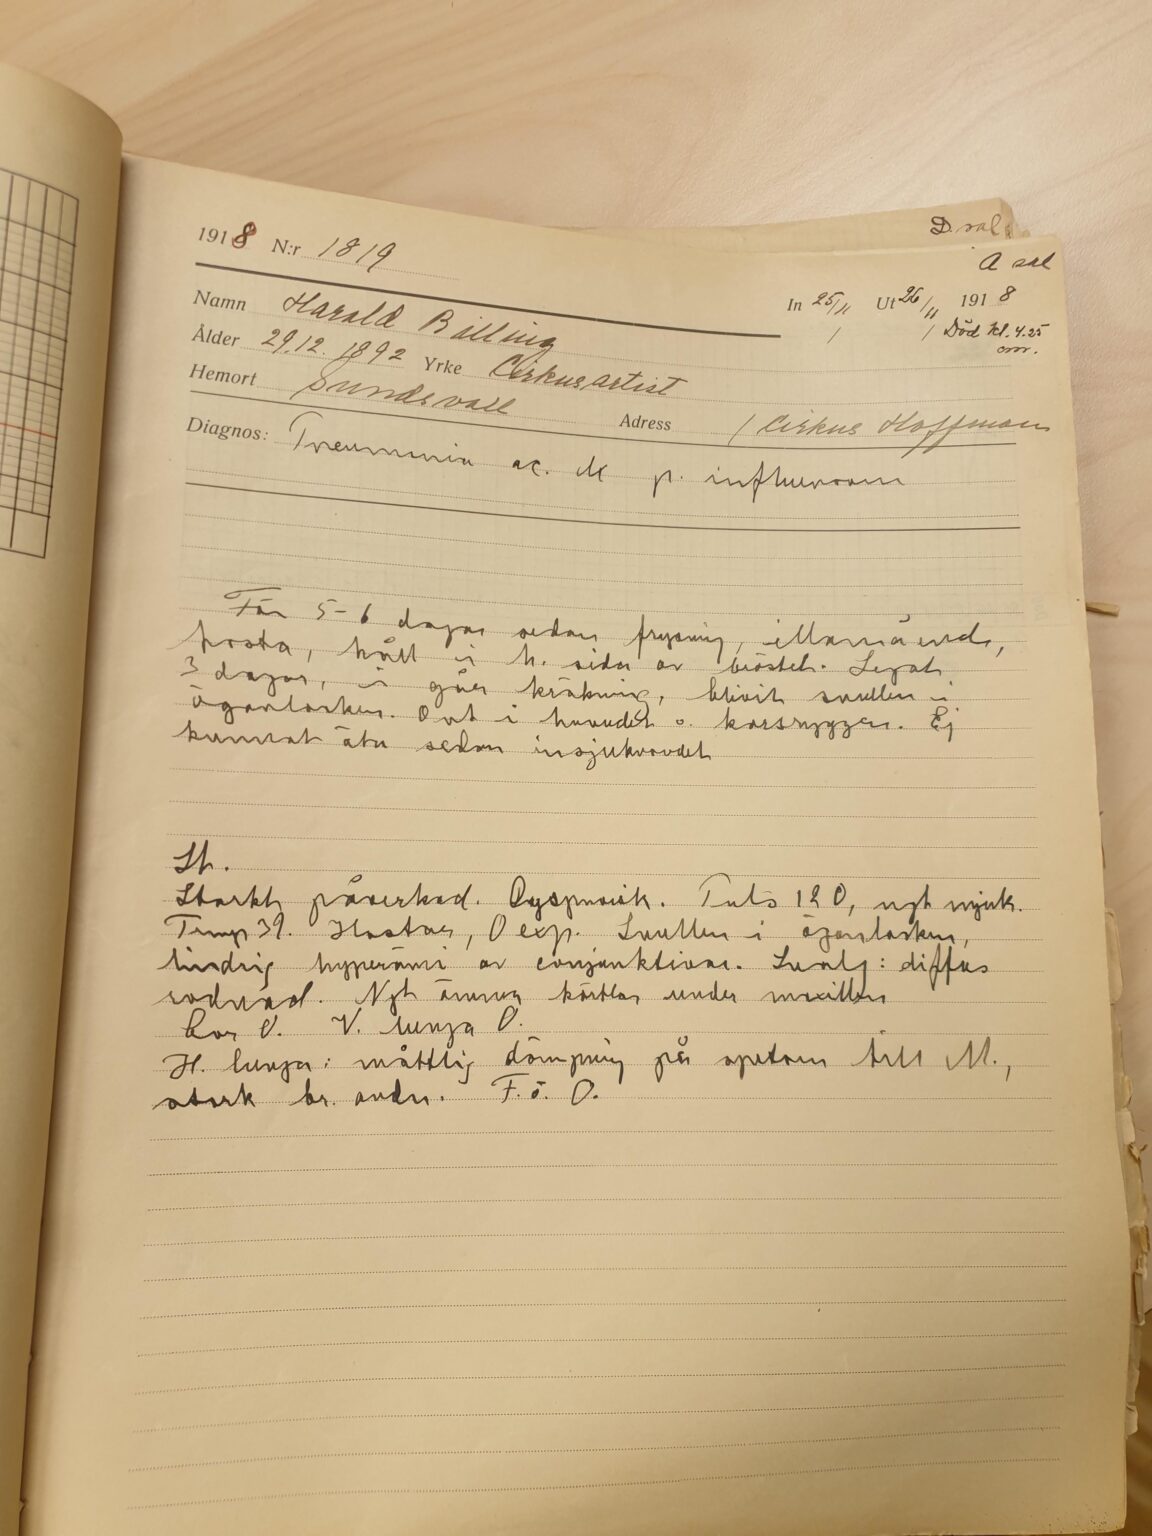 D. sal
A sal
1918 N:r 1819
In 25/11 Ut 26/11 1918
Namn Harald Billing
/ / Död kl. 4.25
Ålder 29.12.1892 Yrke Cirkusartist
Hemort Sundsvall Adress / Cirkus Hoffman
Diagnos: Pneumonia ac. p. influensam
För 5-6 dagar sedan frysning, illamående,
hosta, håll i h. sida av bröstet. Legat
3 dagar, i går kräkning, blivit svullen i
ögonlocken. Ont i huvudet o. korsryggen. Ej
kunnat äta sedan insjuknandet
St.
Starkt påverkad. Dyspnoisk. Puls 120, ngt mjuk.
Temp 39. Hostar, O exp. Svullen i ögonlocken,
lindrig hyperämi av conjunktivae. Svalg: diffus
rodnad. Ngt ömma körtlar under maxillen
Cor O. V. lunga O.
H. lunga: måttlig dämpning på spetsen till M.,
stark br. andn. F. ö. O.